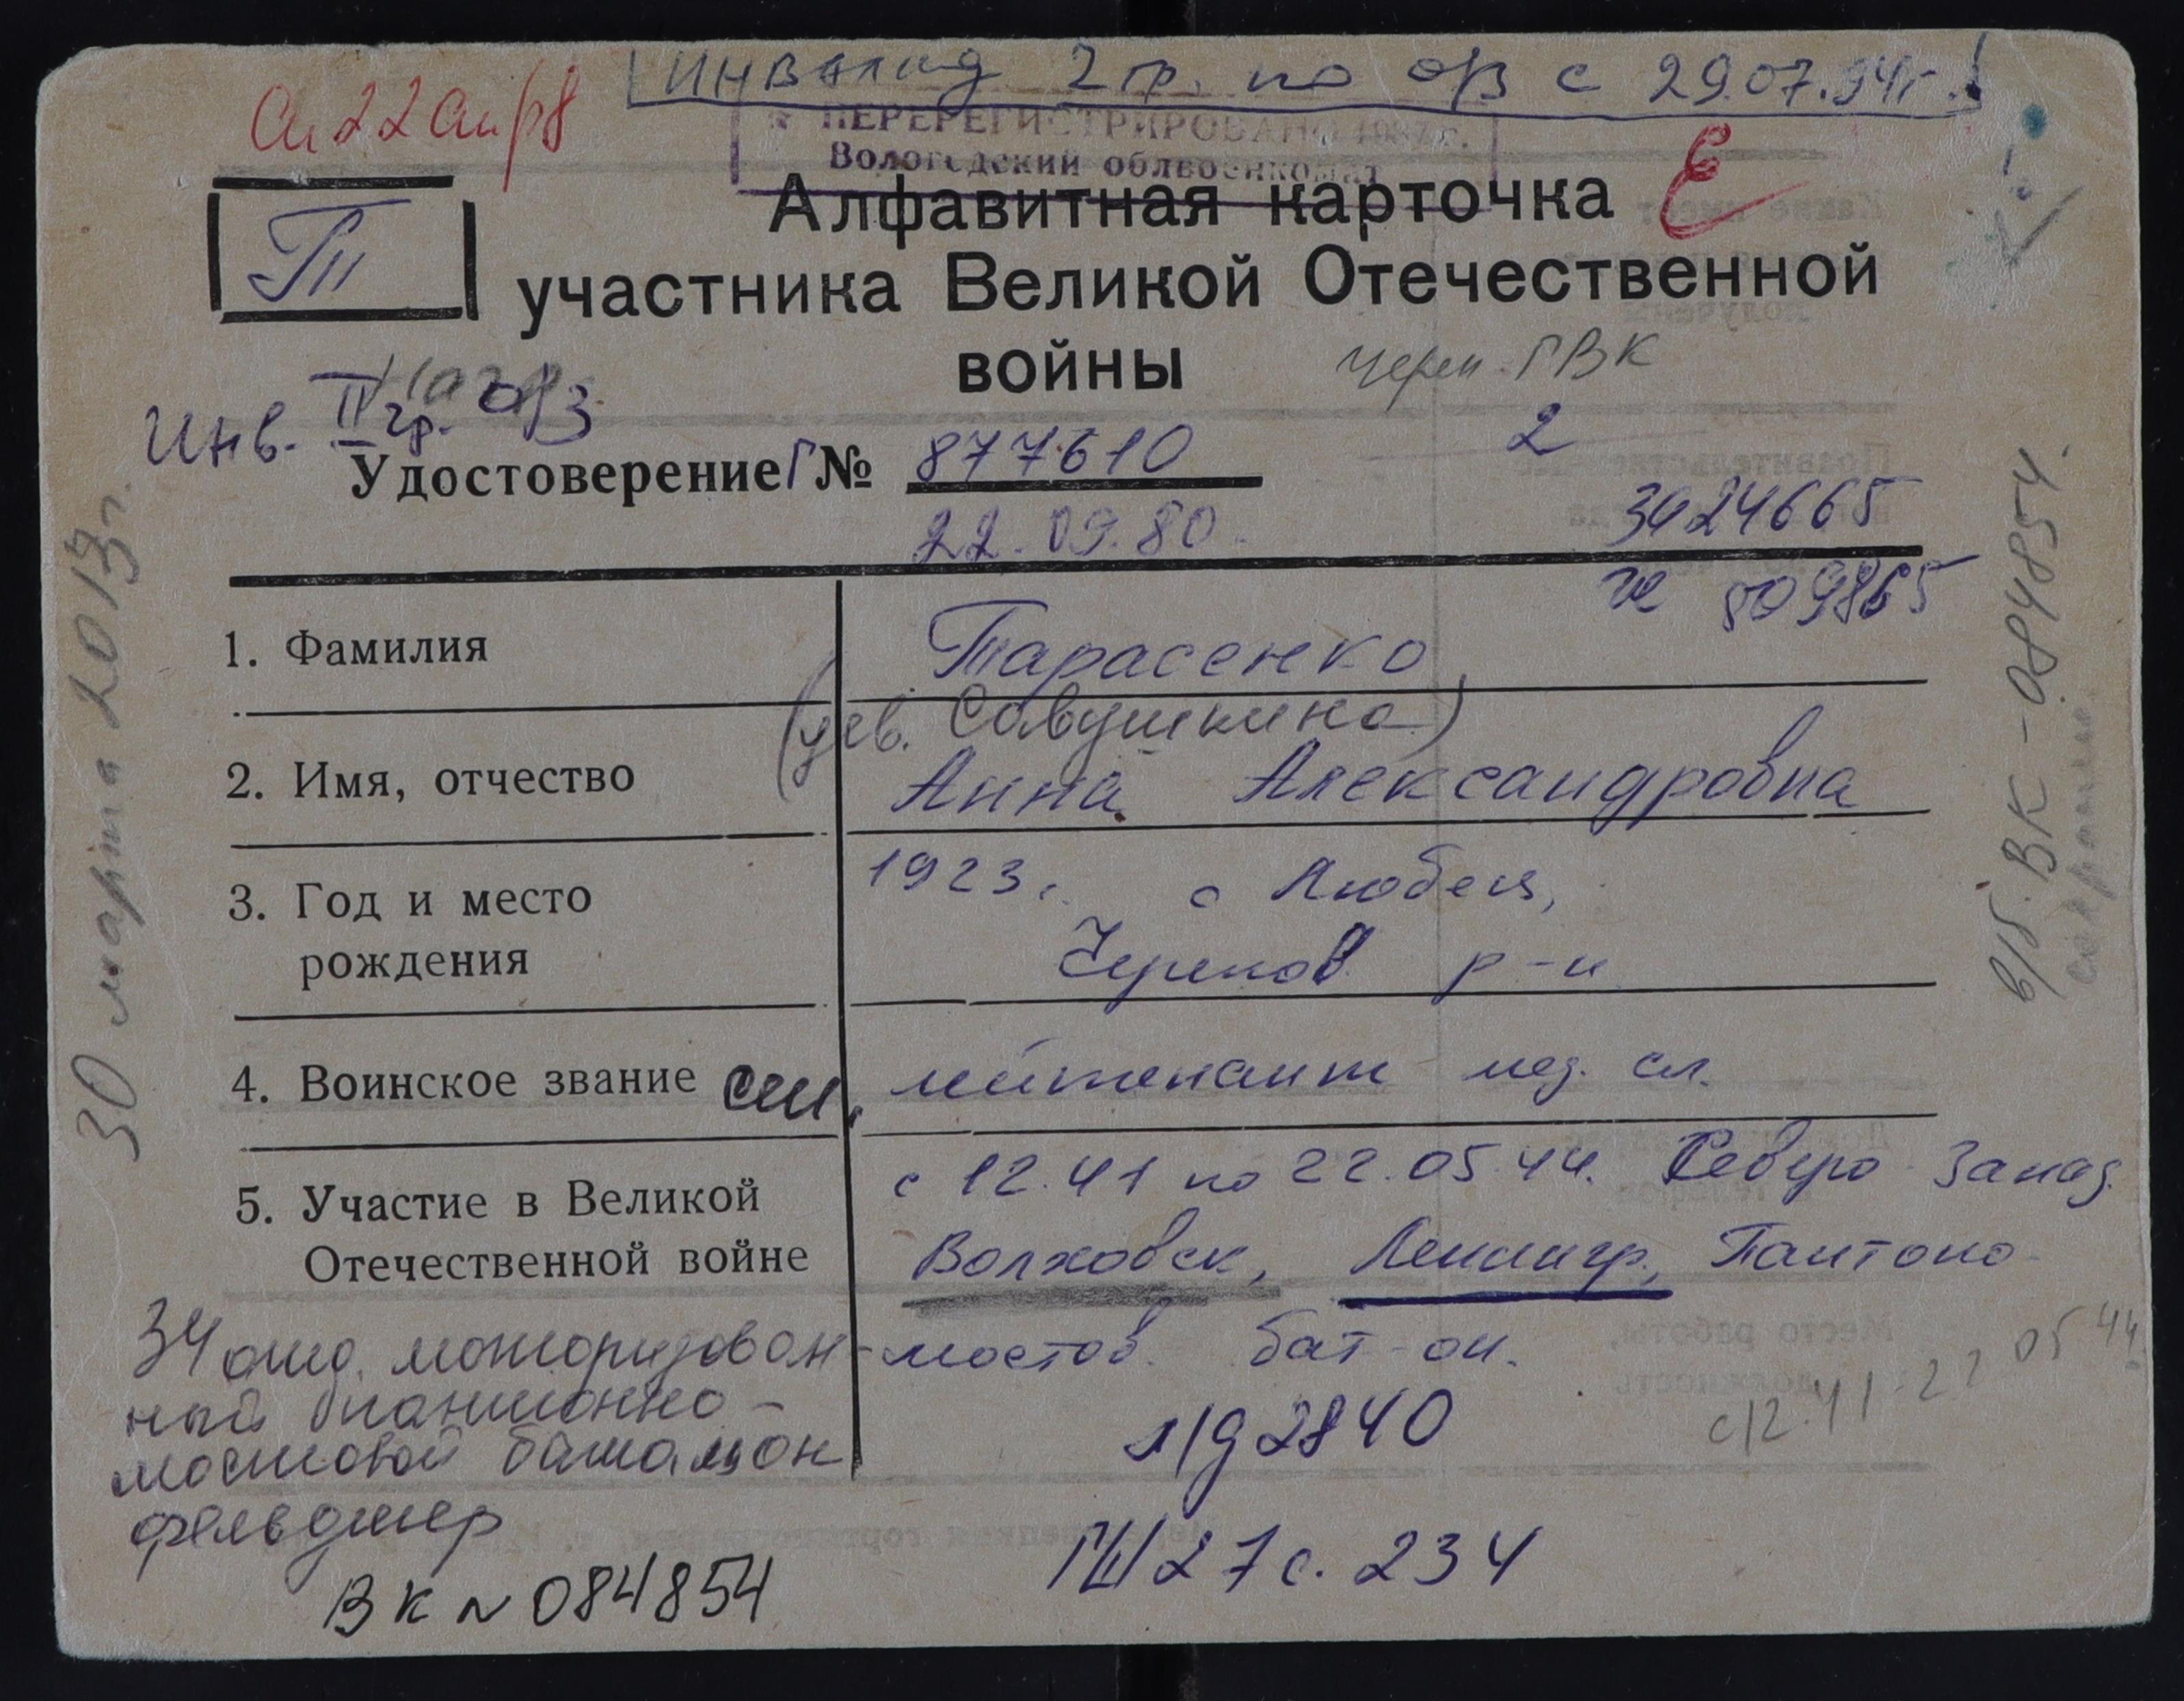 Инвалид 2 гр. по о/з с 29.07.94г.
ПЕРЕРЕГИСТРИРОВАНО
Вологодский облвоенкомат
Алфавитная карточка
участника Великой Отечественной
войны
Черен. ГВК
Инв. II гр. о/з
2
Удостоверение Г № 877610
22.09.80.
3424665
509865
1. Фамилия Тарасенко
(дев. Савушкина)
2. Имя, отчество Анна Александровна
3. Год и место 1923г. с Любец,
рождения Черепов р-н
4. Воинское звание ст. лейтенант мед. сл.
5. Участие в Великой с 12.41 по 22.05.44. Северо-Запад.
Отечественной войне Волховск, Ленингр., Понтоно-
мостов. бат-он.
34 отд. моторизован-
ный понтонно-
мостовой батальон
фельдшер
с 12.41-22 05 44
л/д 2840
ГШ 27 с. 234
ВК № 084854
30 марта 2013г.
в/б. ВК-084854.